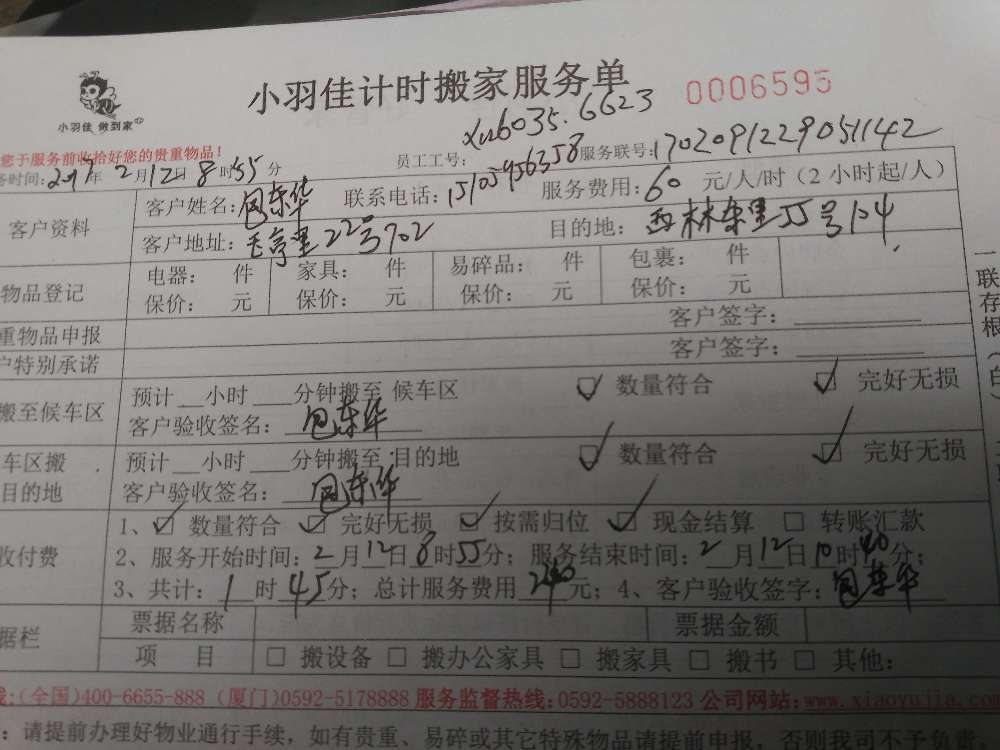 小羽佳计时搬家服务单
0006595
小羽佳 做到家
您于服务前收拾好您的贵重物品！
员工工号： xu6035.6623
服务联号：170209122905 1142
务时间：2017年2月12日8时55分
客户资料
客户姓名：包东华 联系电话：15105956358 服务费用：60元/人/时（2小时起/人）
客户地址： 里22号702 目的地：西林东里55号104
物品登记
电器： 件 家具： 件 易碎品： 件 包裹： 件
保价： 元 保价： 元 保价： 元 保价： 元
重物品申报 客户签字：
户特别承诺 客户签字：
搬至候车区
预计 小时 分钟搬至 候车区 数量符合 完好无损
客户验收签名：包东华
车区搬
目的地
预计 小时 分钟搬至 目的地 数量符合 完好无损
客户验收签名：包东华
收付费
1、 数量符合 完好无损 按需归位 现金结算 转账汇款
2、服务开始时间：2月12日8时55分；服务结束时间：2月12日10时40分；
3、共计：1时45分；总计服务费用240元；4、客户验收签字：包东华
据栏
票据名称 票据金额
项 目 搬设备 搬办公家具 搬家具 搬书 其他：
线：(全国)400-6655-888 (厦门)0592-5178888 服务监督热线：0592-5888123 公司网站：www.xiaoyujia.com
：请提前办理好物业通行手续，如有贵重、易碎或其它特殊物品请提前申报，否则我司不予负责
一联存根（白）